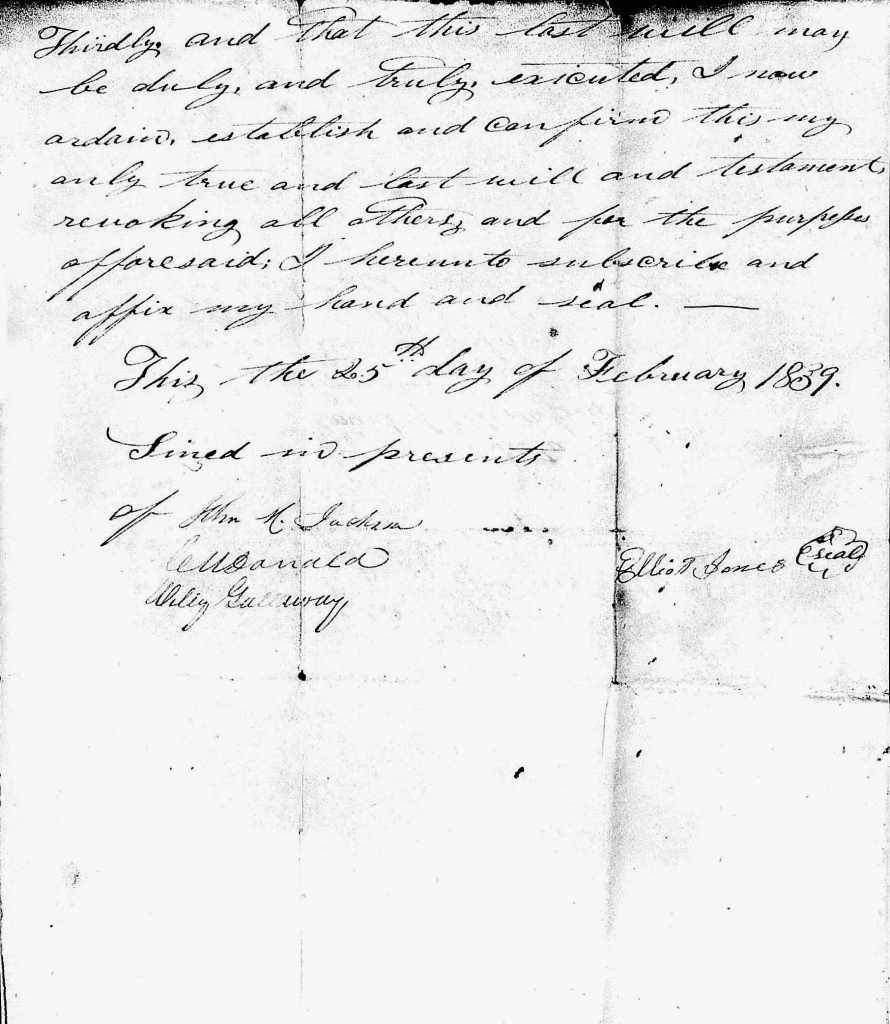 Thirdly. and that this last will may
be duly, and truly, executed, I now
ordain, establish and confirm this my
only true and last will and testament,
revoking all others, and for the purposes
afforesaid; I hereunto subscribe and
affix my hand and seal. —
This, the 25th day of February 1839.
Sined in presents
of John M. Jackson
C McDonald
Wiley Gallaway,
Elliot Jones (seal)